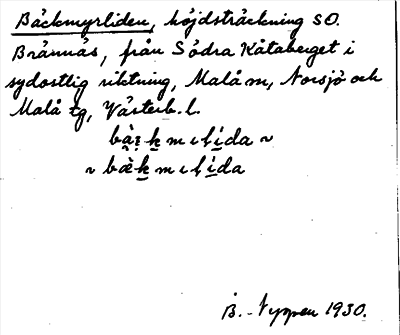 Bäckmyrliden, höjdsträckning SO.
Brännäs, från Södra Kåtaberget i
sydostlig riktning, Malå m, Norsjö och
Malå tg, Västerb. l.
~ bæ̀k m ι lída
1930.